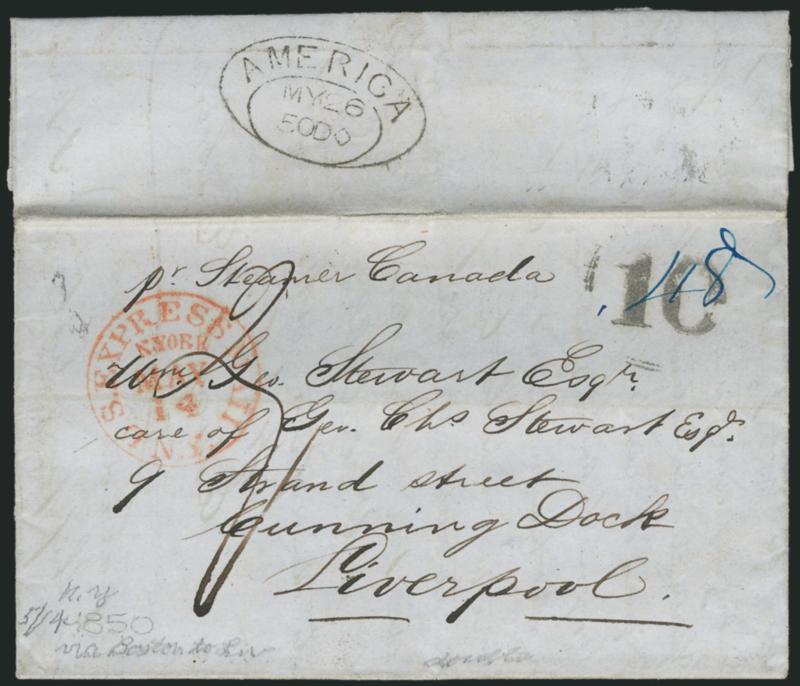 AMERICA
MY 26
50 D
pr Steamer Canada
10
48
U.S. EXPRESS MAIL
N. YORK
MAY
14
Wm. Geo. Stewart Esqr.
care of Geo. Chs Stewart Esqr.
9 Strand street
Cunning Dock
Liverpool.
N.Y
1850
via Boston to Liv
double